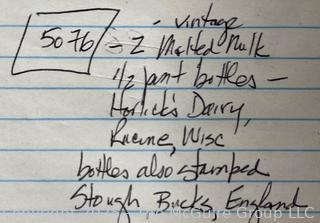 - vintage
5076 - 2 Malted Milk
1/2 pint bottles -
Horlick's Dairy,
Racine, Wisc
bottles also stamped
Slough Bucks, England
McGuire Group LLC